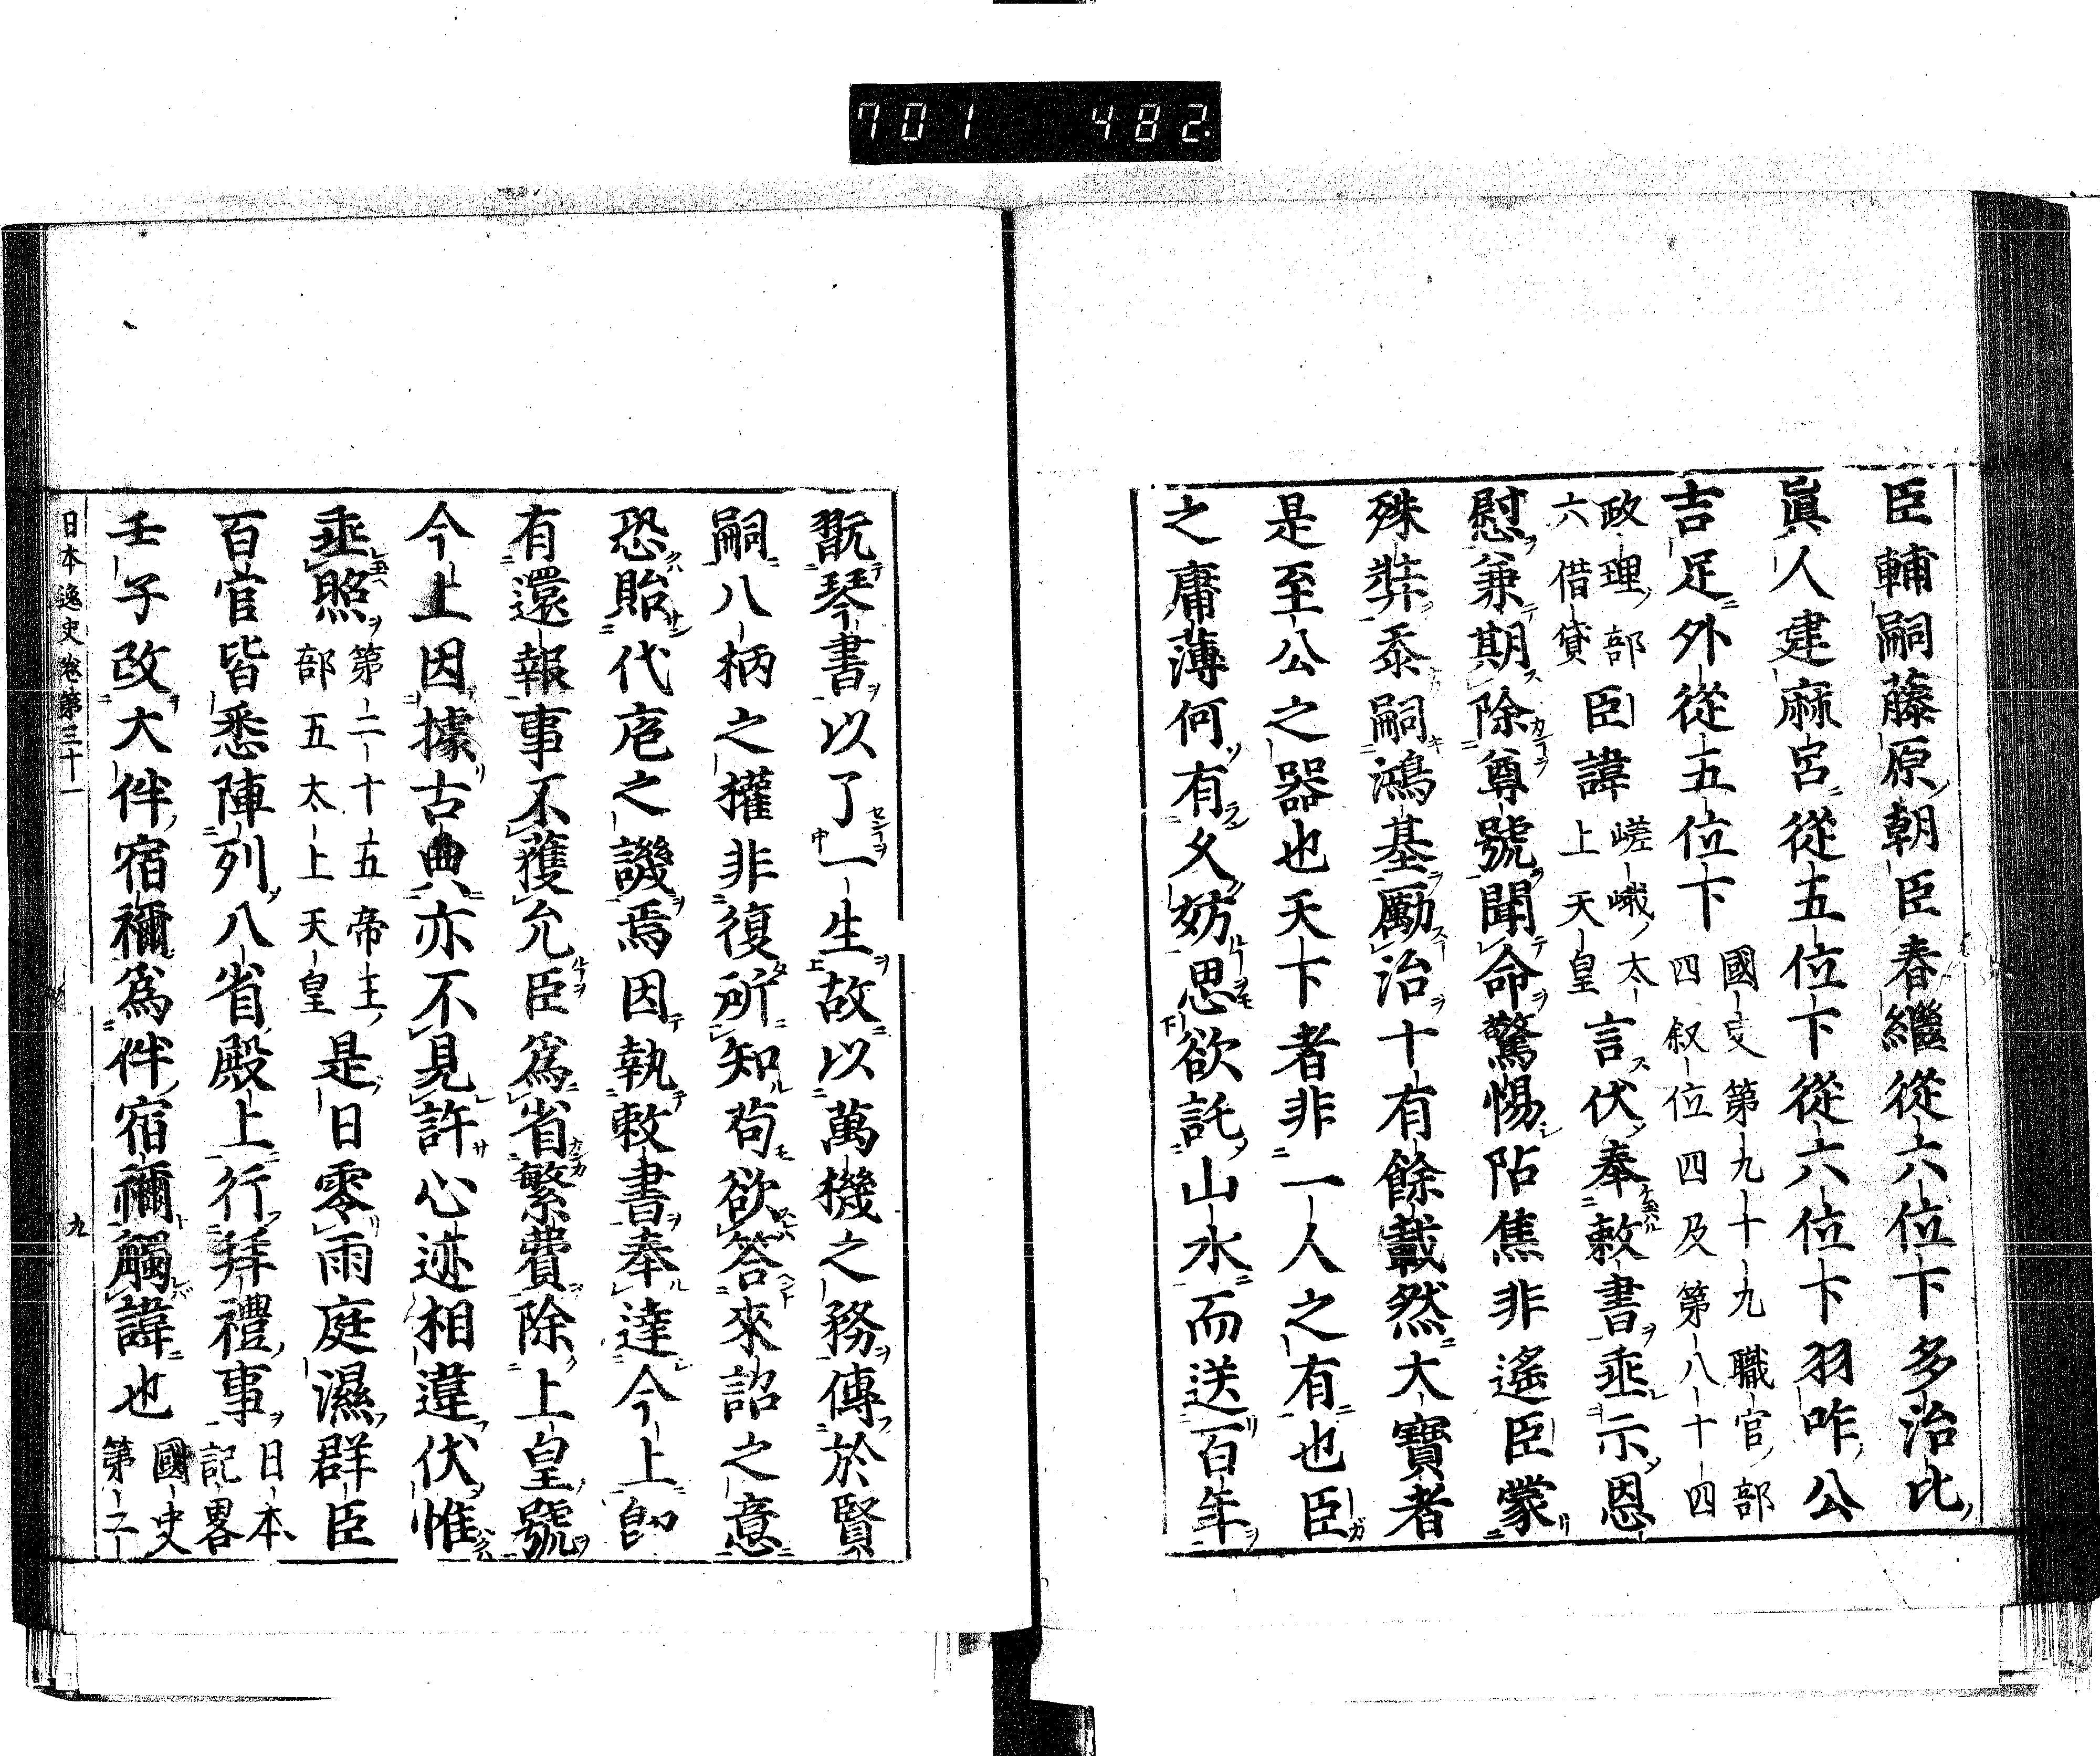 701 482.
臣輔嗣藤原朝臣春繼從六位下多治比
眞人建麻呂從五位下從六位下羽咋公
吉足外從五位下
國史第九十九職官部
四叙位四及第八十四
政理部
六借貸
臣諱
嵯峨太
上天皇
言伏奉敕書垂示恩
慰兼期除尊號聞命驚惕阽焦非遙臣蒙
殊奘忝嗣鴻基勵治十有餘載然大寶者
是至公之器也天下者非一人之有也臣
之庸薄何有久妨思欲託山水而送百年
翫琴書以了一生故以萬機之務傳於賢
嗣八柄之權非復所知苟欲答來詔之意
恐貽代庖之譏焉因執敕書奉達今上卽
有還報事不獲允臣爲省繁費除上皇號
今上因據古典亦不見許心迹相違伏惟
垂照
第二十五帝王
部五太上天皇
是日零雨庭濕群臣
百官皆悉陣列八省殿上行拜禮事
日本
記畧
壬子改大伴宿禰爲伴宿禰觸諱也
國史
第之
日本逸史卷第三十一
九